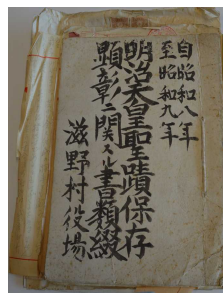 自昭和八年
至昭和九年
明治天皇聖蹟保存
顕彰ニ関スル書類綴
滋野村役場